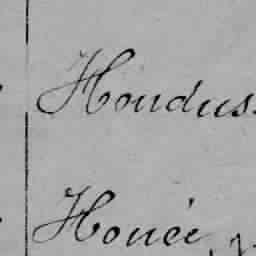 Houdus.
Houée,